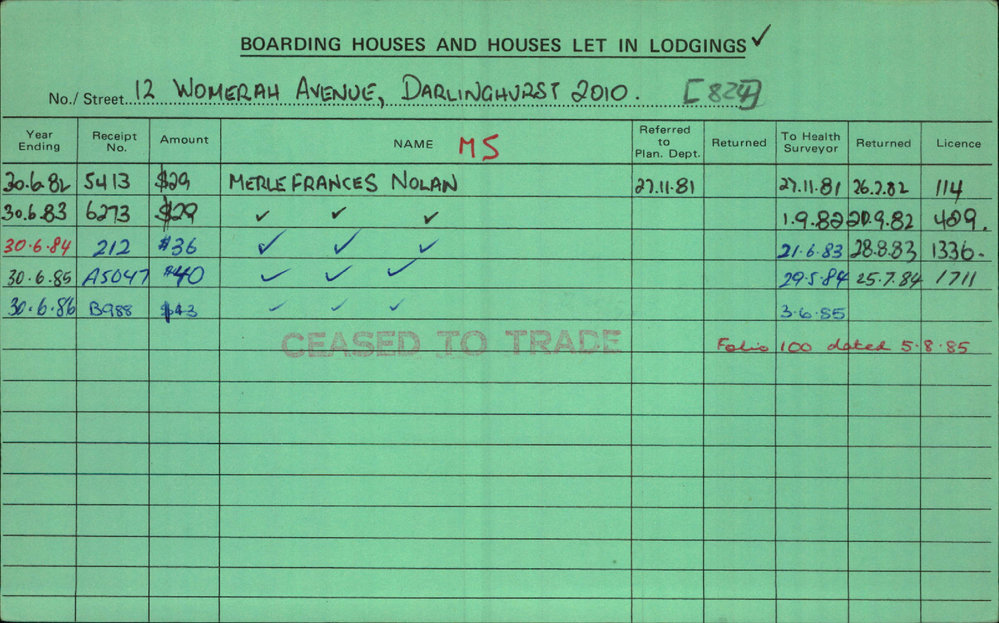 BOARDING HOUSES AND HOUSES LET IN LODGINGS ✓
No./ Street 12 WOMERAH AVENUE, DARLINGHURST 2010. [824]
Year Ending Receipt No. Amount NAME MS Referred to Plan. Dept. Returned To Health Surveyor Returned Licence
30.6.82 5413 $29 MERLE FRANCES NOLAN 27.11.81 27.11.81 26.2.82 114
30.6.83 6273 $29 ✓ ✓ ✓ 1.9.82 20.9.82 409.
30.6.84 212 $36 ✓ ✓ ✓ 21.6.83 28.8.83 1336.
30.6.85 A5047 $40 ✓ ✓ ✓ 29.5.84 25.7.84 1711
30.6.86 B988 $43 ✓ ✓ ✓ 3.6.85
CEASED TO TRADE Folio 100 dated 5.8.85